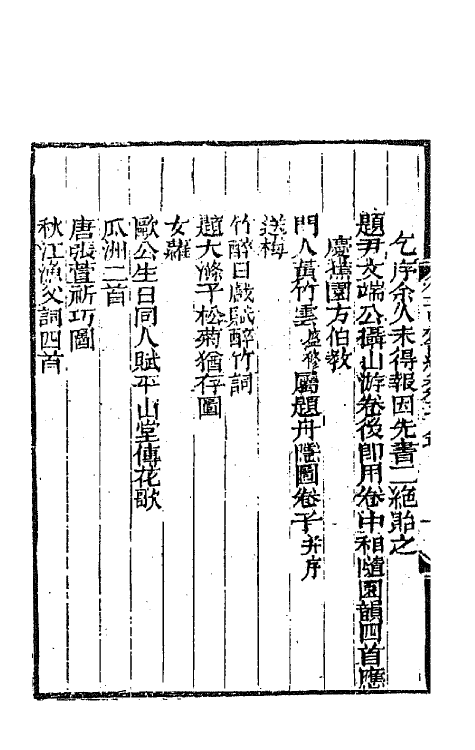 乞序余久未得報因先書二絕貽之
題尹文端公攝山游卷後即用卷中和隨園韻四首應
慶蕉園方伯教
門人黃竹雲屬題丹隱圖卷子并序
送梅
竹醉日戲賦醉竹詞
題大滌子松菊猶存圖
女蘿
歐公生日同人賦平山堂傳花歌
瓜洲二首
唐張萱祈巧圖
秋江漁父詞四首